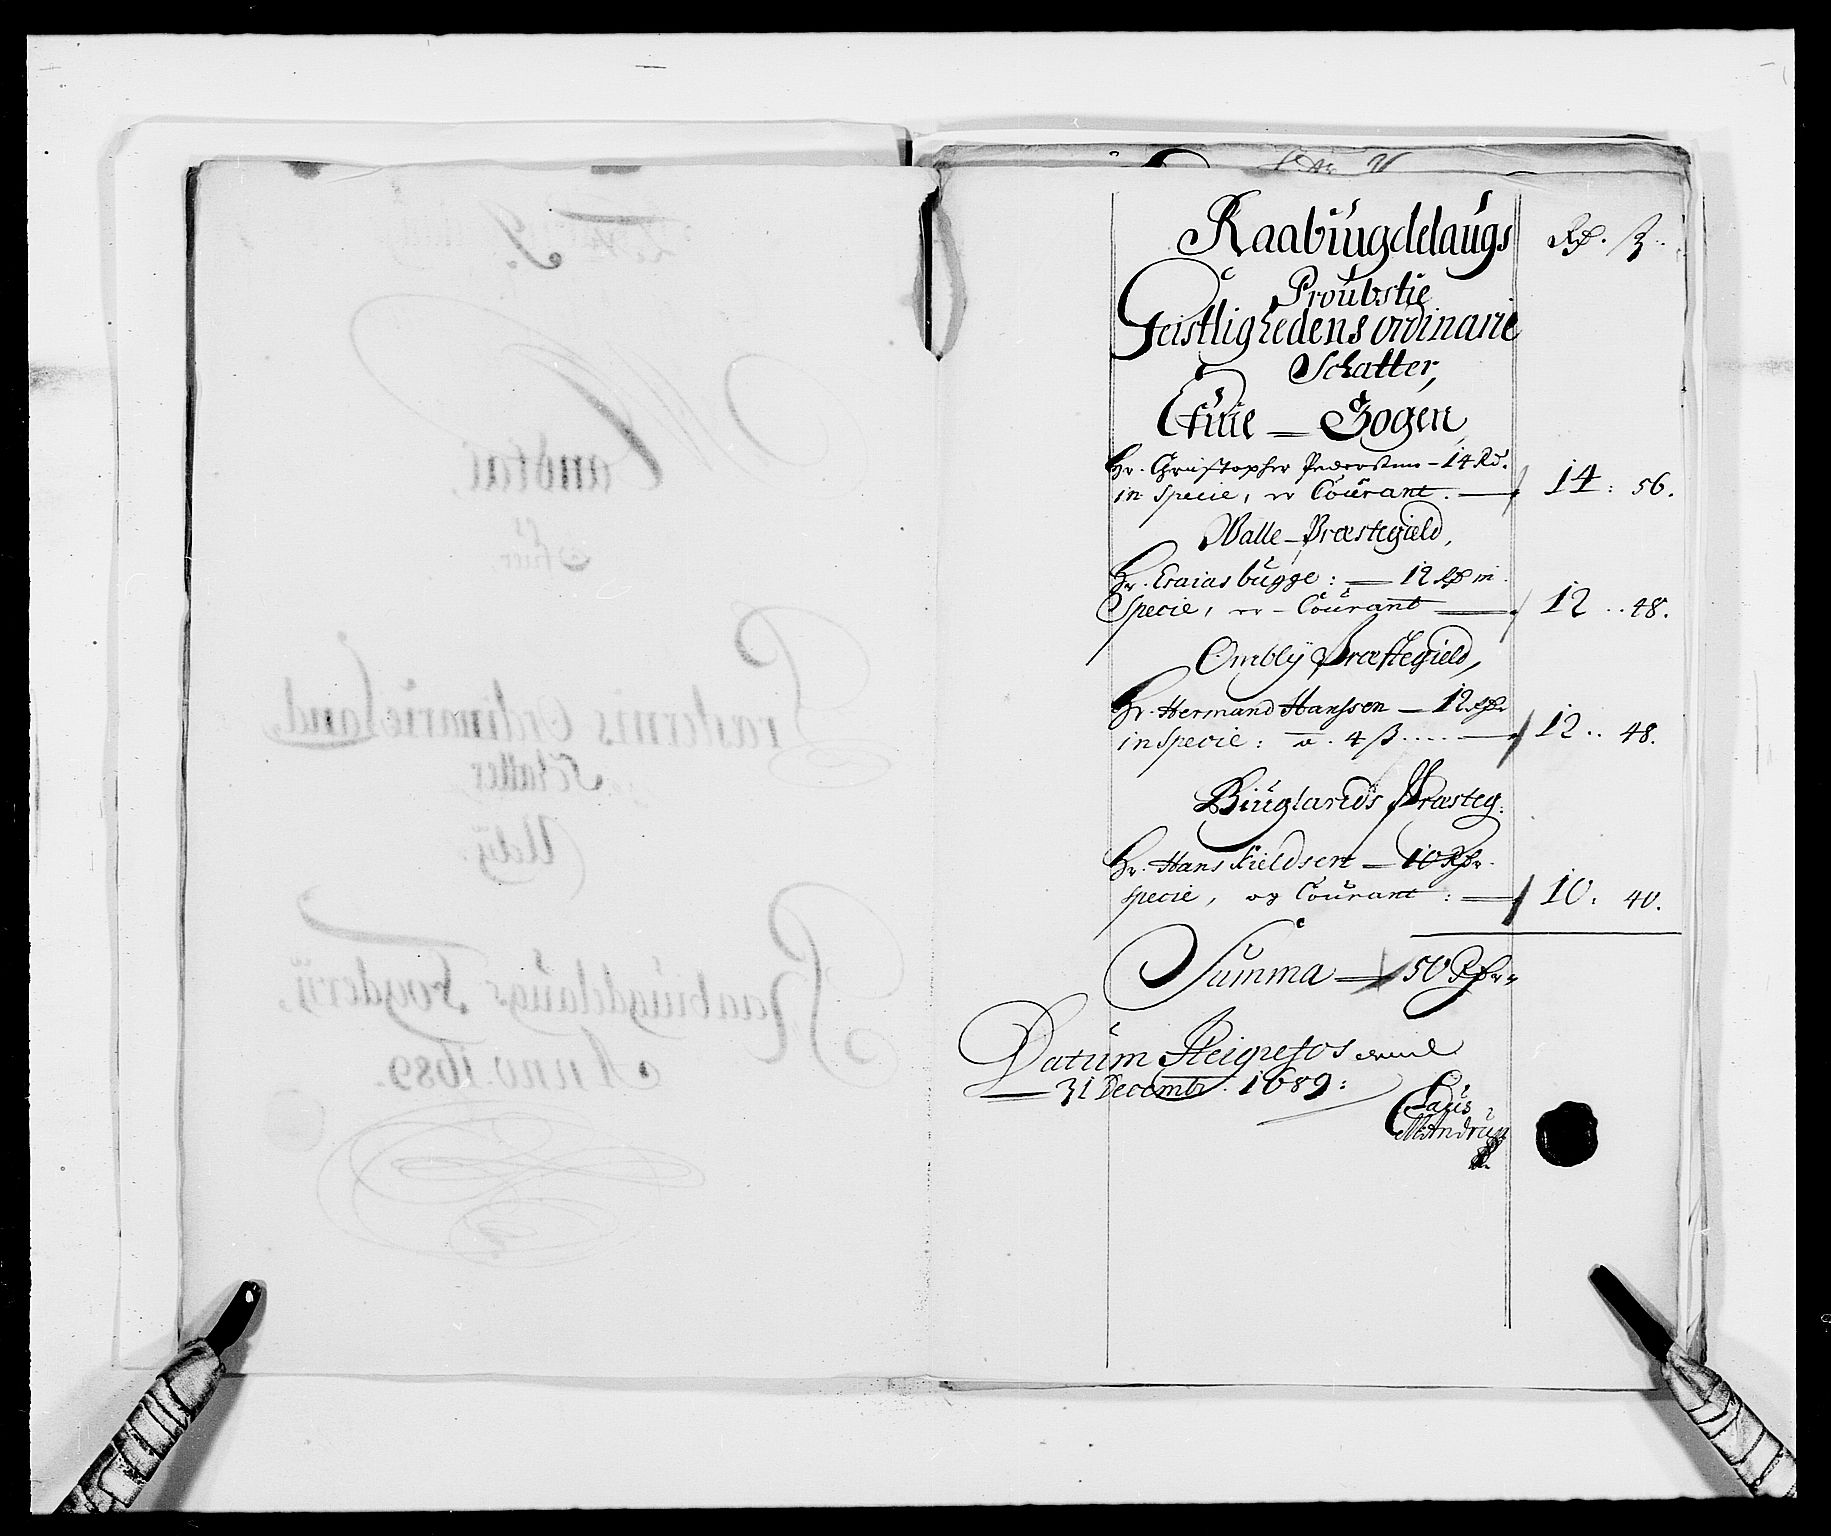 Raabÿugdelaugs Rd. ß.
Proubstie
Geistlighedens ordinarie
Schatter,
Efuie — Sogen
Hr. Christopher Pedersen – 14 Rd.
in Specie, er Courant. — 14: 56.
Walle – Præstegield,
Hr. Esaias bugge: — 12 Rd in
Specie, er – Courant — 12.. 48.
Ombly Præstegield,
Hr. Hermand Hanssen — 12 Rdr
in Specie: a. 4 ß..... — 12.. 48.
Biuglands Præsteg:
Hr. Hans Kieldsen — 10 Rdr.
specie, og Courant: — 10: 40.
Summa — 50 Rdr.
Datum
31 Decembr. 1689:
Claus
Mandrup
Mandtal,
Præsternis Ordinarie land
Schatter
Udj.
Raabÿugdelaugs Fogderij,
Anno. 1689.